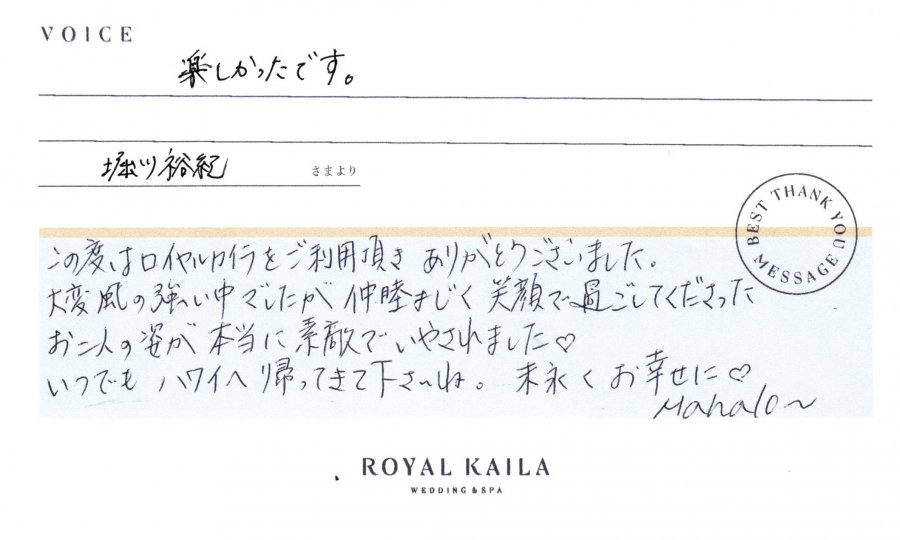 VOICE
楽しかったです。
堀川裕紀 さまより
BEST THANK YOU MESSAGE
この度はロイヤルカイラをご利用頂き ありがとうございました。
大変風の強い中でしたが 仲睦まじく 笑顔で過ごしてくださった
お二人の姿が 本当に素敵で いやされました♡
いつでも ハワイへ帰ってきて下さ〜ね。 末永く お幸せに♡
Mahalo〜
ROYAL KAILA
WEDDING & SPA